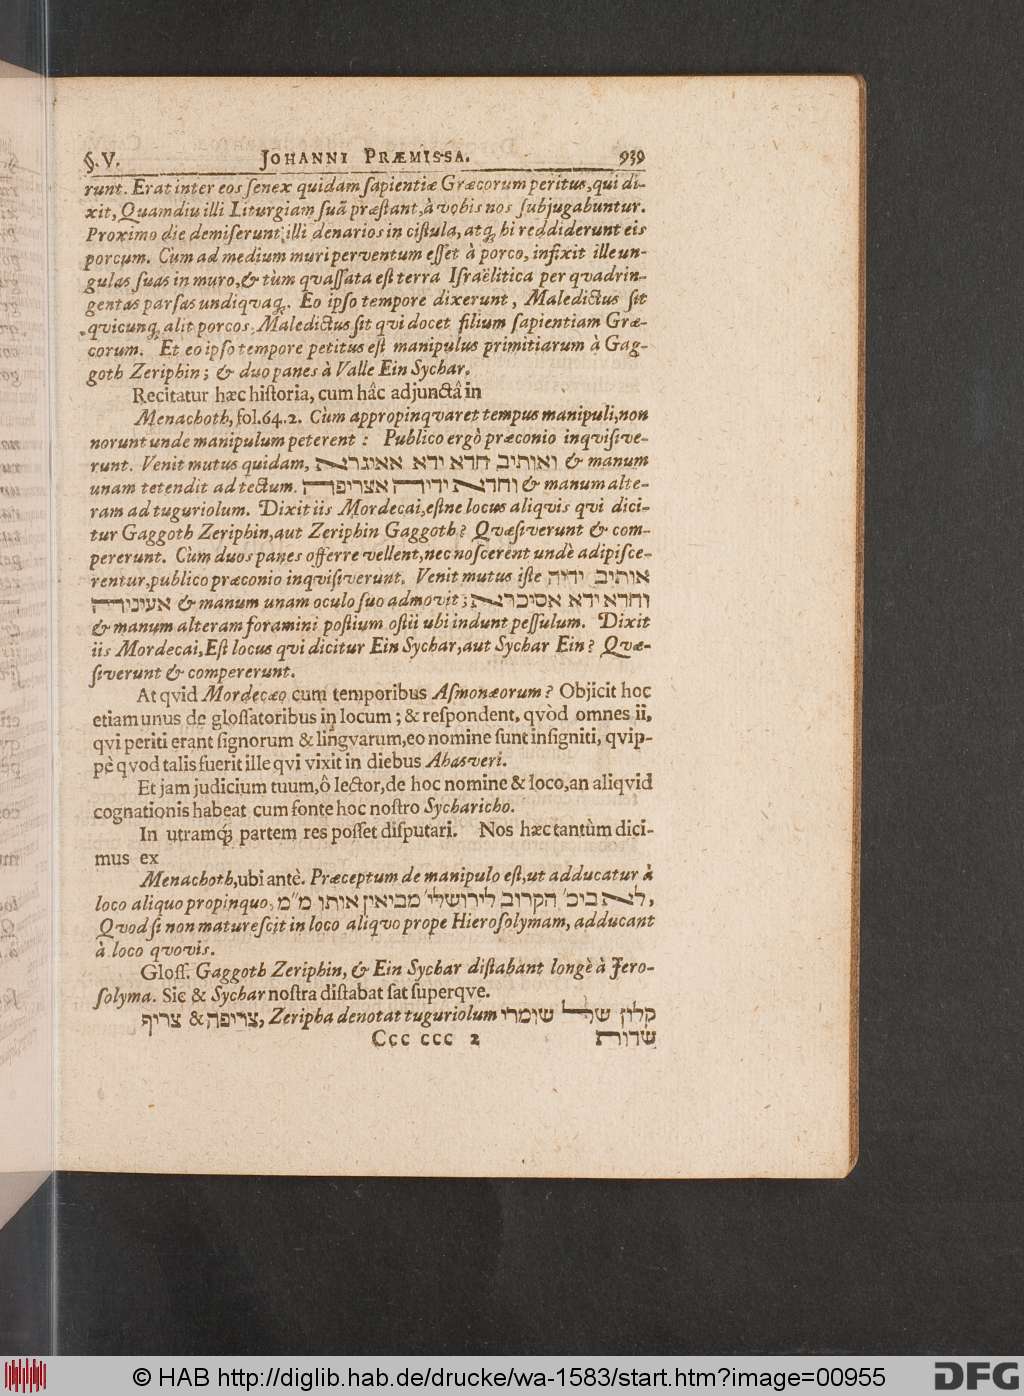 §. V. JOHANNI PRÆMISSA. 939
runt. Erat inter eos ſenex quidam ſapientiæ Græcorum peritus, qui di-
xit, Quamdiu illi Liturgiam ſuã præſtant, à vobis nos ſubjugabuntur.
Proximo die demiſerunt illi denarios in ciſtula, atq; hi reddiderunt eis
porcum. Cùm ad medium muri perventum eſſet à porco, infixit ille un-
gulas ſuas in muro, & tùm qvaſſata eſt terra Iſraëlitica per qvadrin-
gentas parſas undiqvaq;. Eo ipſo tempore dixerunt, Maledictus ſit
qvicunq; alit porcos, Maledictus ſit qvi docet filium ſapientiam Græ-
corum. Et eo ipſo tempore petitus eſt manipulus primitiarum à Gag-
goth Zeriphin; & duo panes à Valle Ein Sychar.
Recitatur hæc hiſtoria, cum hâc adjunctâ in
Menachoth, fol. 64. 2. Cùm appropinqvaret tempus manipuli, non
norunt unde manipulum peterent: Publico ergò præconio inqviſive-
runt. Venit mutus quidam, ואותיב חדא ידא אאיגרא & manum
unam tetendit ad tectum. וחדא ידיה אצריפה & manum alte-
ram ad tuguriolum. Dixit iis Mordecai, eſtne locus aliqvis qvi dici-
tur Gaggoth Zeriphin, aut Zeriphin Gaggoth? Qvæſiverunt & com-
pererunt. Cùm duos panes offerre vellent, nec noſcerent undè adipiſce-
rentur, publico præconio inqviſiverunt. Venit mutus iſte אותיב ידיה
אעיניה & manum unam oculo ſuo admovit; וחדא ידא אסיכרא
& manum alteram foramini poſtium oſtii ubi indunt peſſulum. Dixit
iis Mordecai, Eſt locus qvi dicitur Ein Sychar, aut Sychar Ein? Qvæ-
ſiverunt & compererunt.
At qvid Mordecæo cum temporibus Aſmonæorum? Objicit hoc
etiam unus de gloſſatoribus in locum; & reſpondent, qvòd omnes ii,
qvi periti erant ſignorum & lingvarum, eo nomine ſunt inſigniti, qvip-
pè qvod talis fuerit ille qvi vixit in diebus Ahasveri.
Et jam judicium tuum, ô lector, de hoc nomine & loco, an aliqvid
cognationis habeat cum fonte hoc noſtro Sycharicho.
In utramq; partem res poſſet diſputari. Nos hæc tantùm dici-
mus ex
Menachoth, ubi antè. Præceptum de manipulo eſt, ut adducatur à
loco aliquo propinquo, לא ביכ׳ הקרוב לירושלי׳ מביאין אותו מ״מ,
Qvod ſi non matureſcit in loco aliqvo prope Hieroſolymam, adducant
à loco qvovis.
Gloſſ. Gaggoth Zeriphin, & Ein Sychar diſtabant longè à Jero-
ſolyma. Sic & Sychar noſtra diſtabat ſat ſuperqve.
צריף & צריפה, Zeripha denotat tuguriolum קלון של שומרי
Ccc ccc 2 שדות
© HAB http://diglib.hab.de/drucke/wa-1583/start.htm?image=00955
DFG